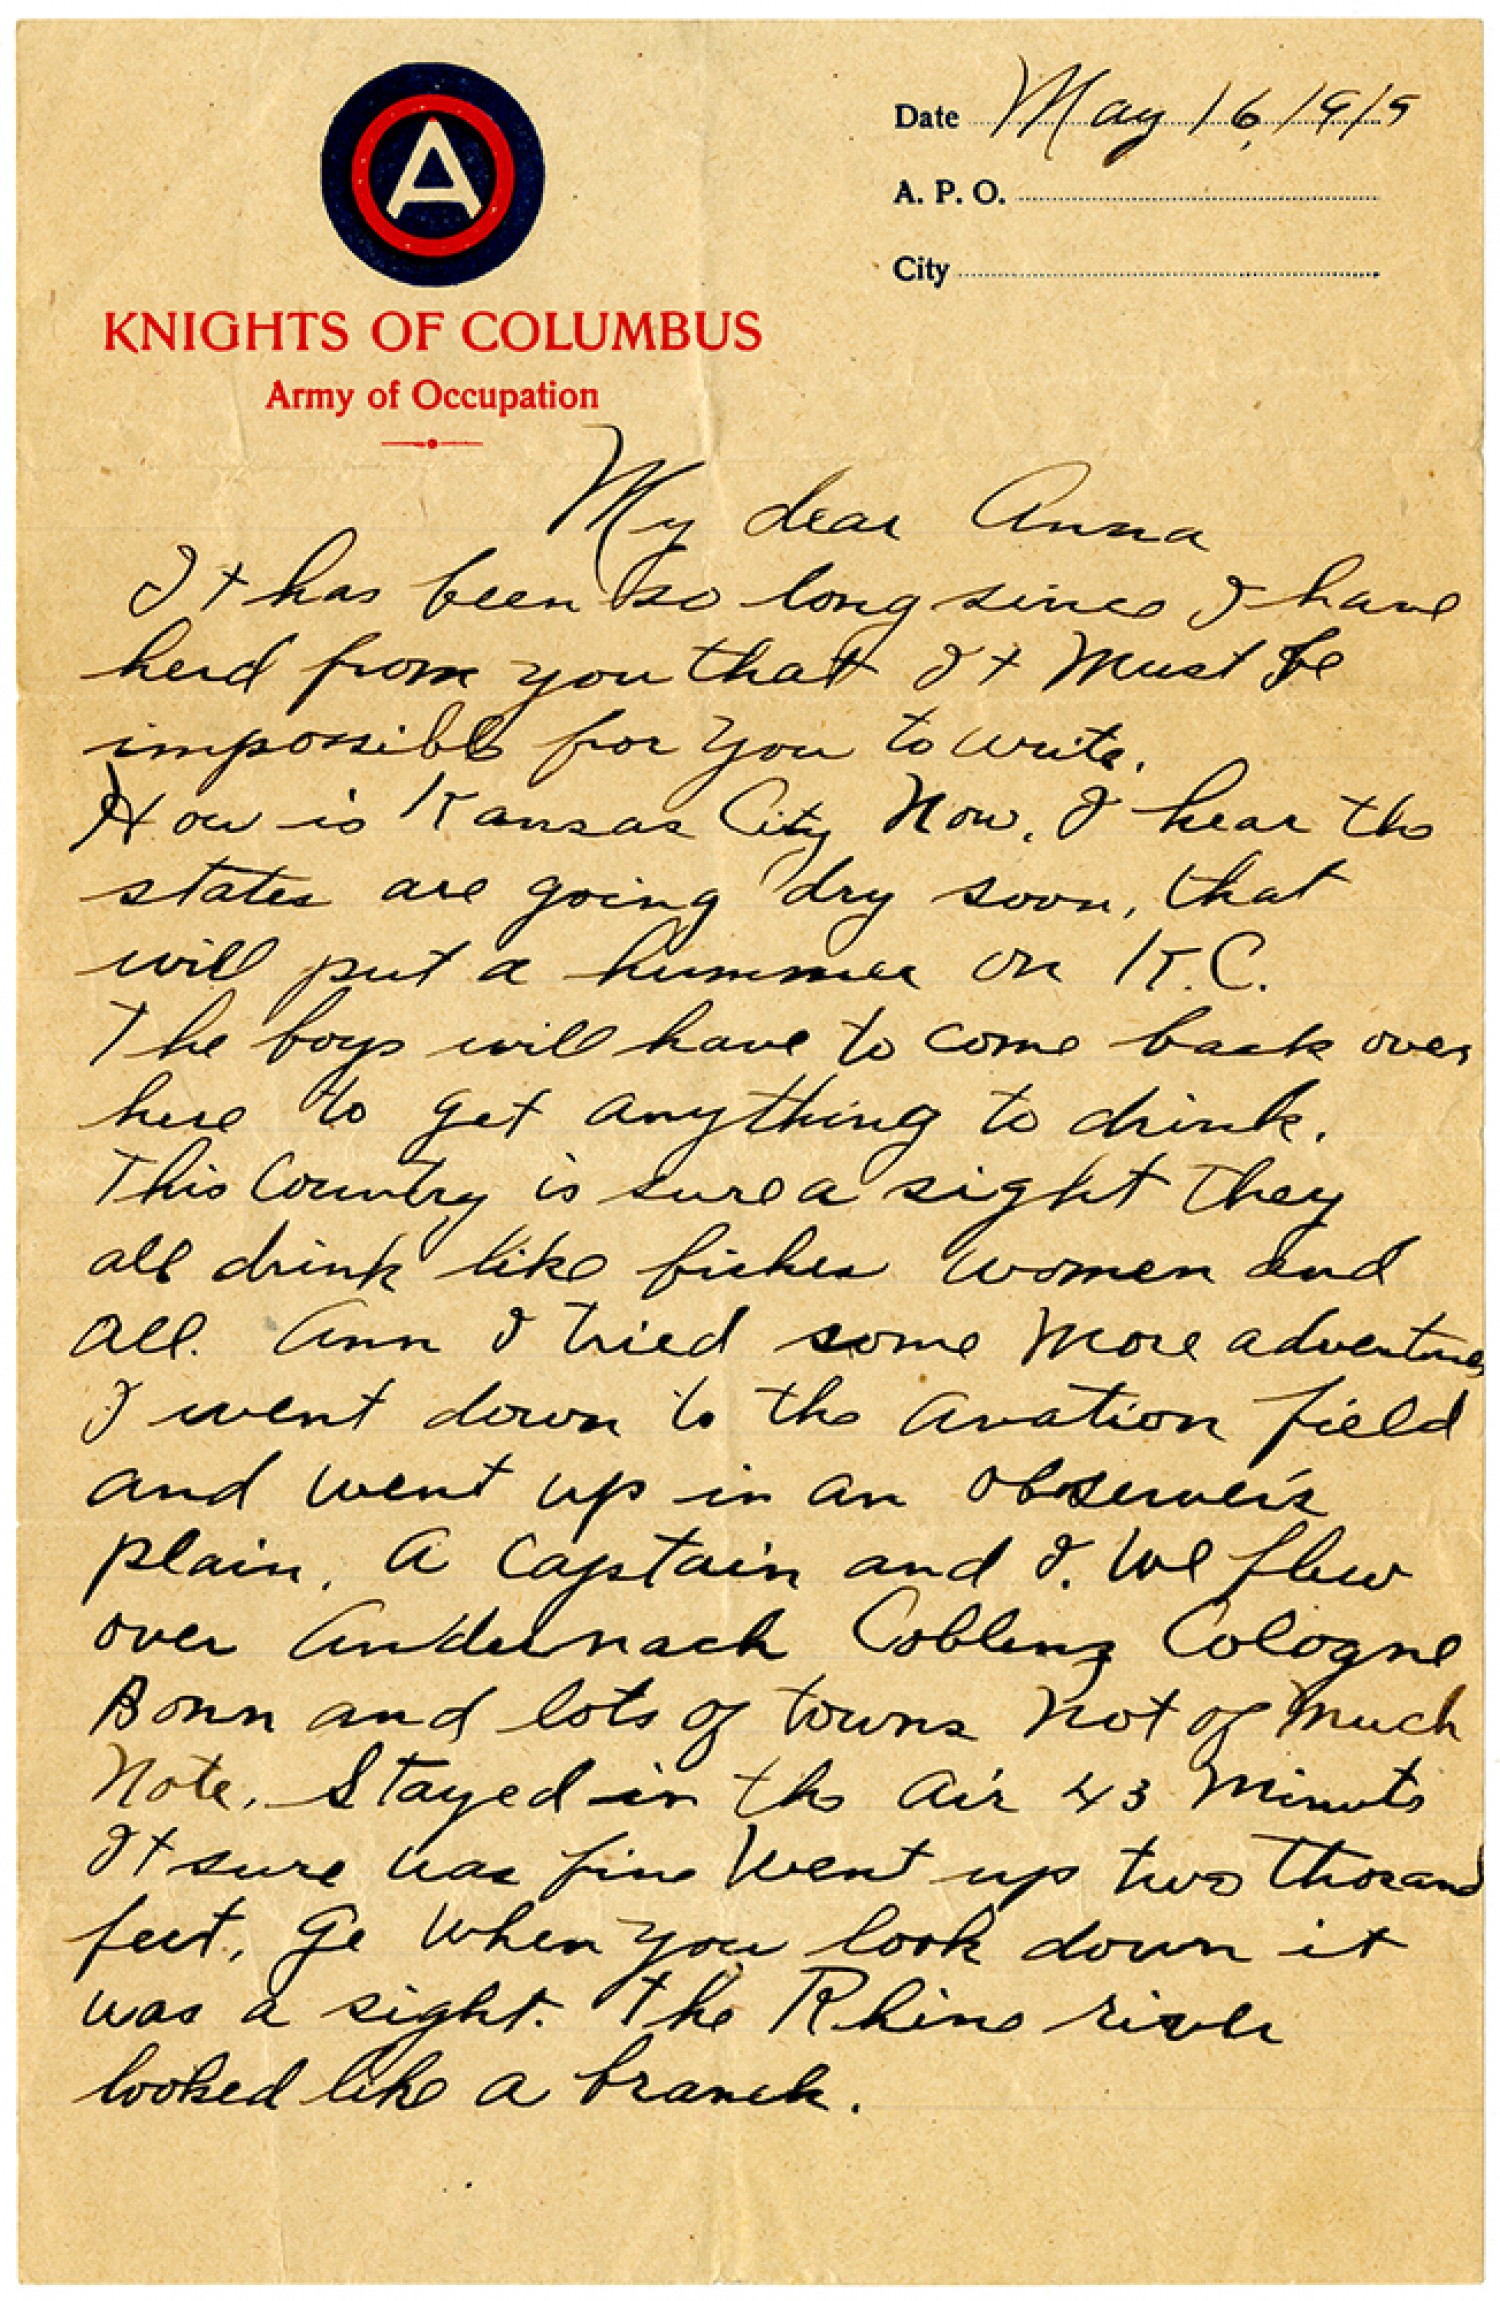 A
KNIGHTS OF COLUMBUS
Army of Occupation
Date May 16, 1919
A. P. O.
City
My dear Anna
It has been so long since I have
herd from you that It Must Be
impossible for you to write.
How is Kansas City Now. I hear the
states are going dry soon, that
will put a hummer on K.C.
The boys will have to come back over
here to get anything to drink.
This Country is sure a sight they
all drink like fishes women and
all. Ann I tried some More adventures
I went down to the avation field
and went up in an observer's
plain. A Captain and I. We flew
over Andernach Coblenz Cologne
Bonn and lots of towns Not of Much
Note. Stayed in the air 43 Minuts
It sure was fine Went up two thosand
feet, Ge When you look down it
was a sight. The Rhine river
looked like a branch.